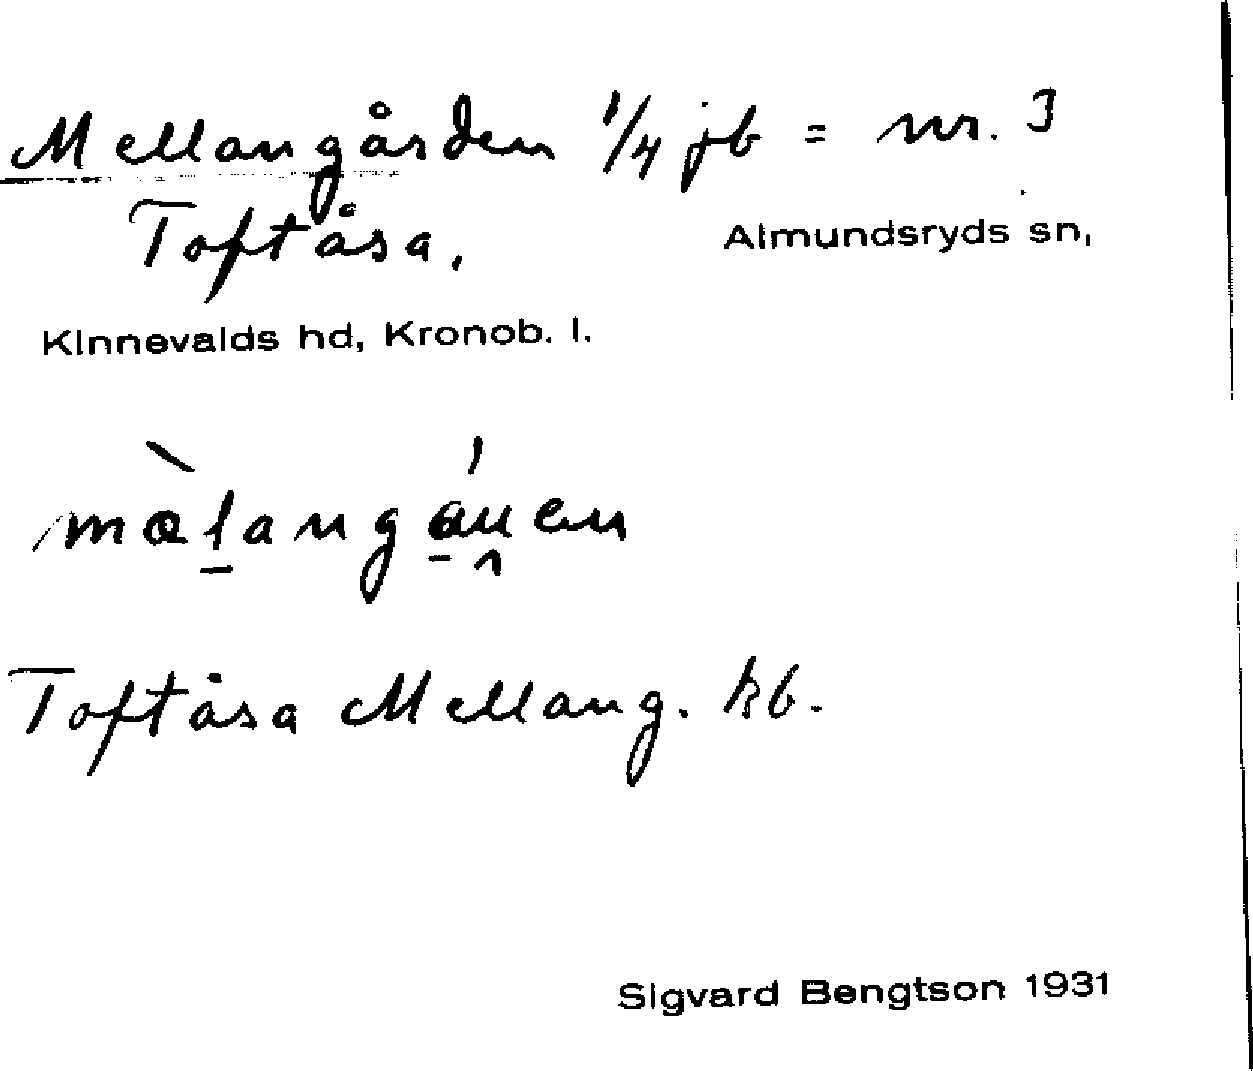 Mellangården 1/4 jb = nr. 3
Toftåsa, Almundsryds sn,
Kinnevalds hd, Kronob. l.
Toftåsa Mellang. kb.
Sigvard Bengtson 1931